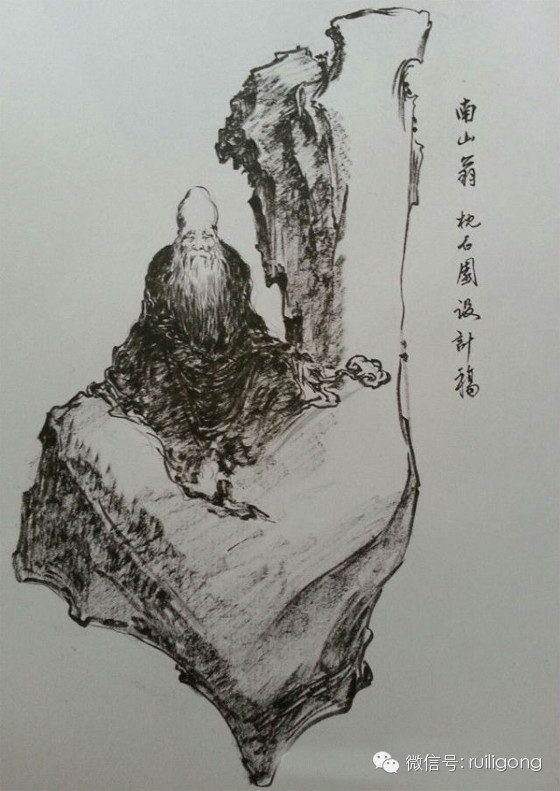 南山翁 枕石园设計稿
微信号: ruiligong